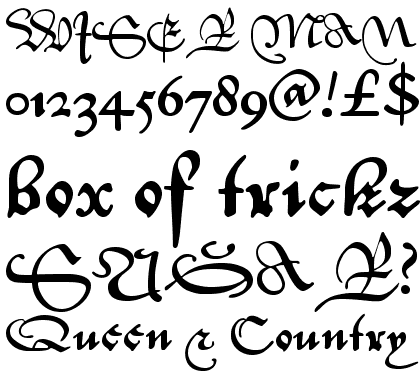 WISER MAN
0123456789@!£$
box of trickz
SUGAR?
Queen & Country